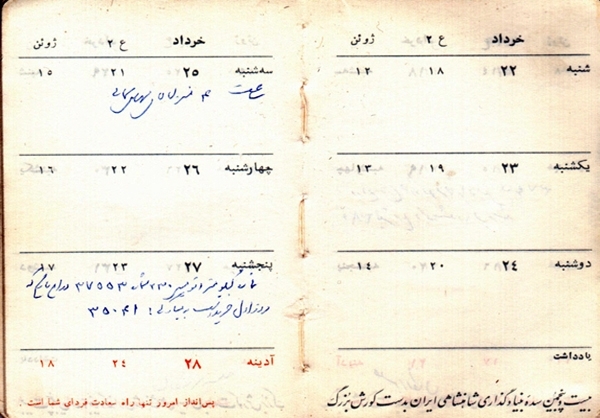 خرداد ع ۲ ژوئن
شنبه ۲۲ ۱۸ ۱۲
یکشنبه ۲۳ ۱۹ ۱۳
دوشنبه ۲۴ ۲۰ ۱۴
یادداشت
بیست و پنجمین سدهٔ بنیادگذاری شاهنشاهی ایران بدست کورش بزرگ
خرداد ع ۲ ژوئن
سه‌شنبه ۲۵ ۲۱ ۱۵
ساعت ۴ منزل
چهارشنبه ۲۶ ۲۲ ۱۶
پنجشنبه ۲۷ ۲۳ ۱۷
کیلومتر اتومبیل ۲۳۰ ۳۷۵۵۳
روز اول خرید ۳۵۰۴۱
آدینه ۲۸ ۲۴ ۱۸
پس‌انداز امروز تنها راه سعادت فردای شما است